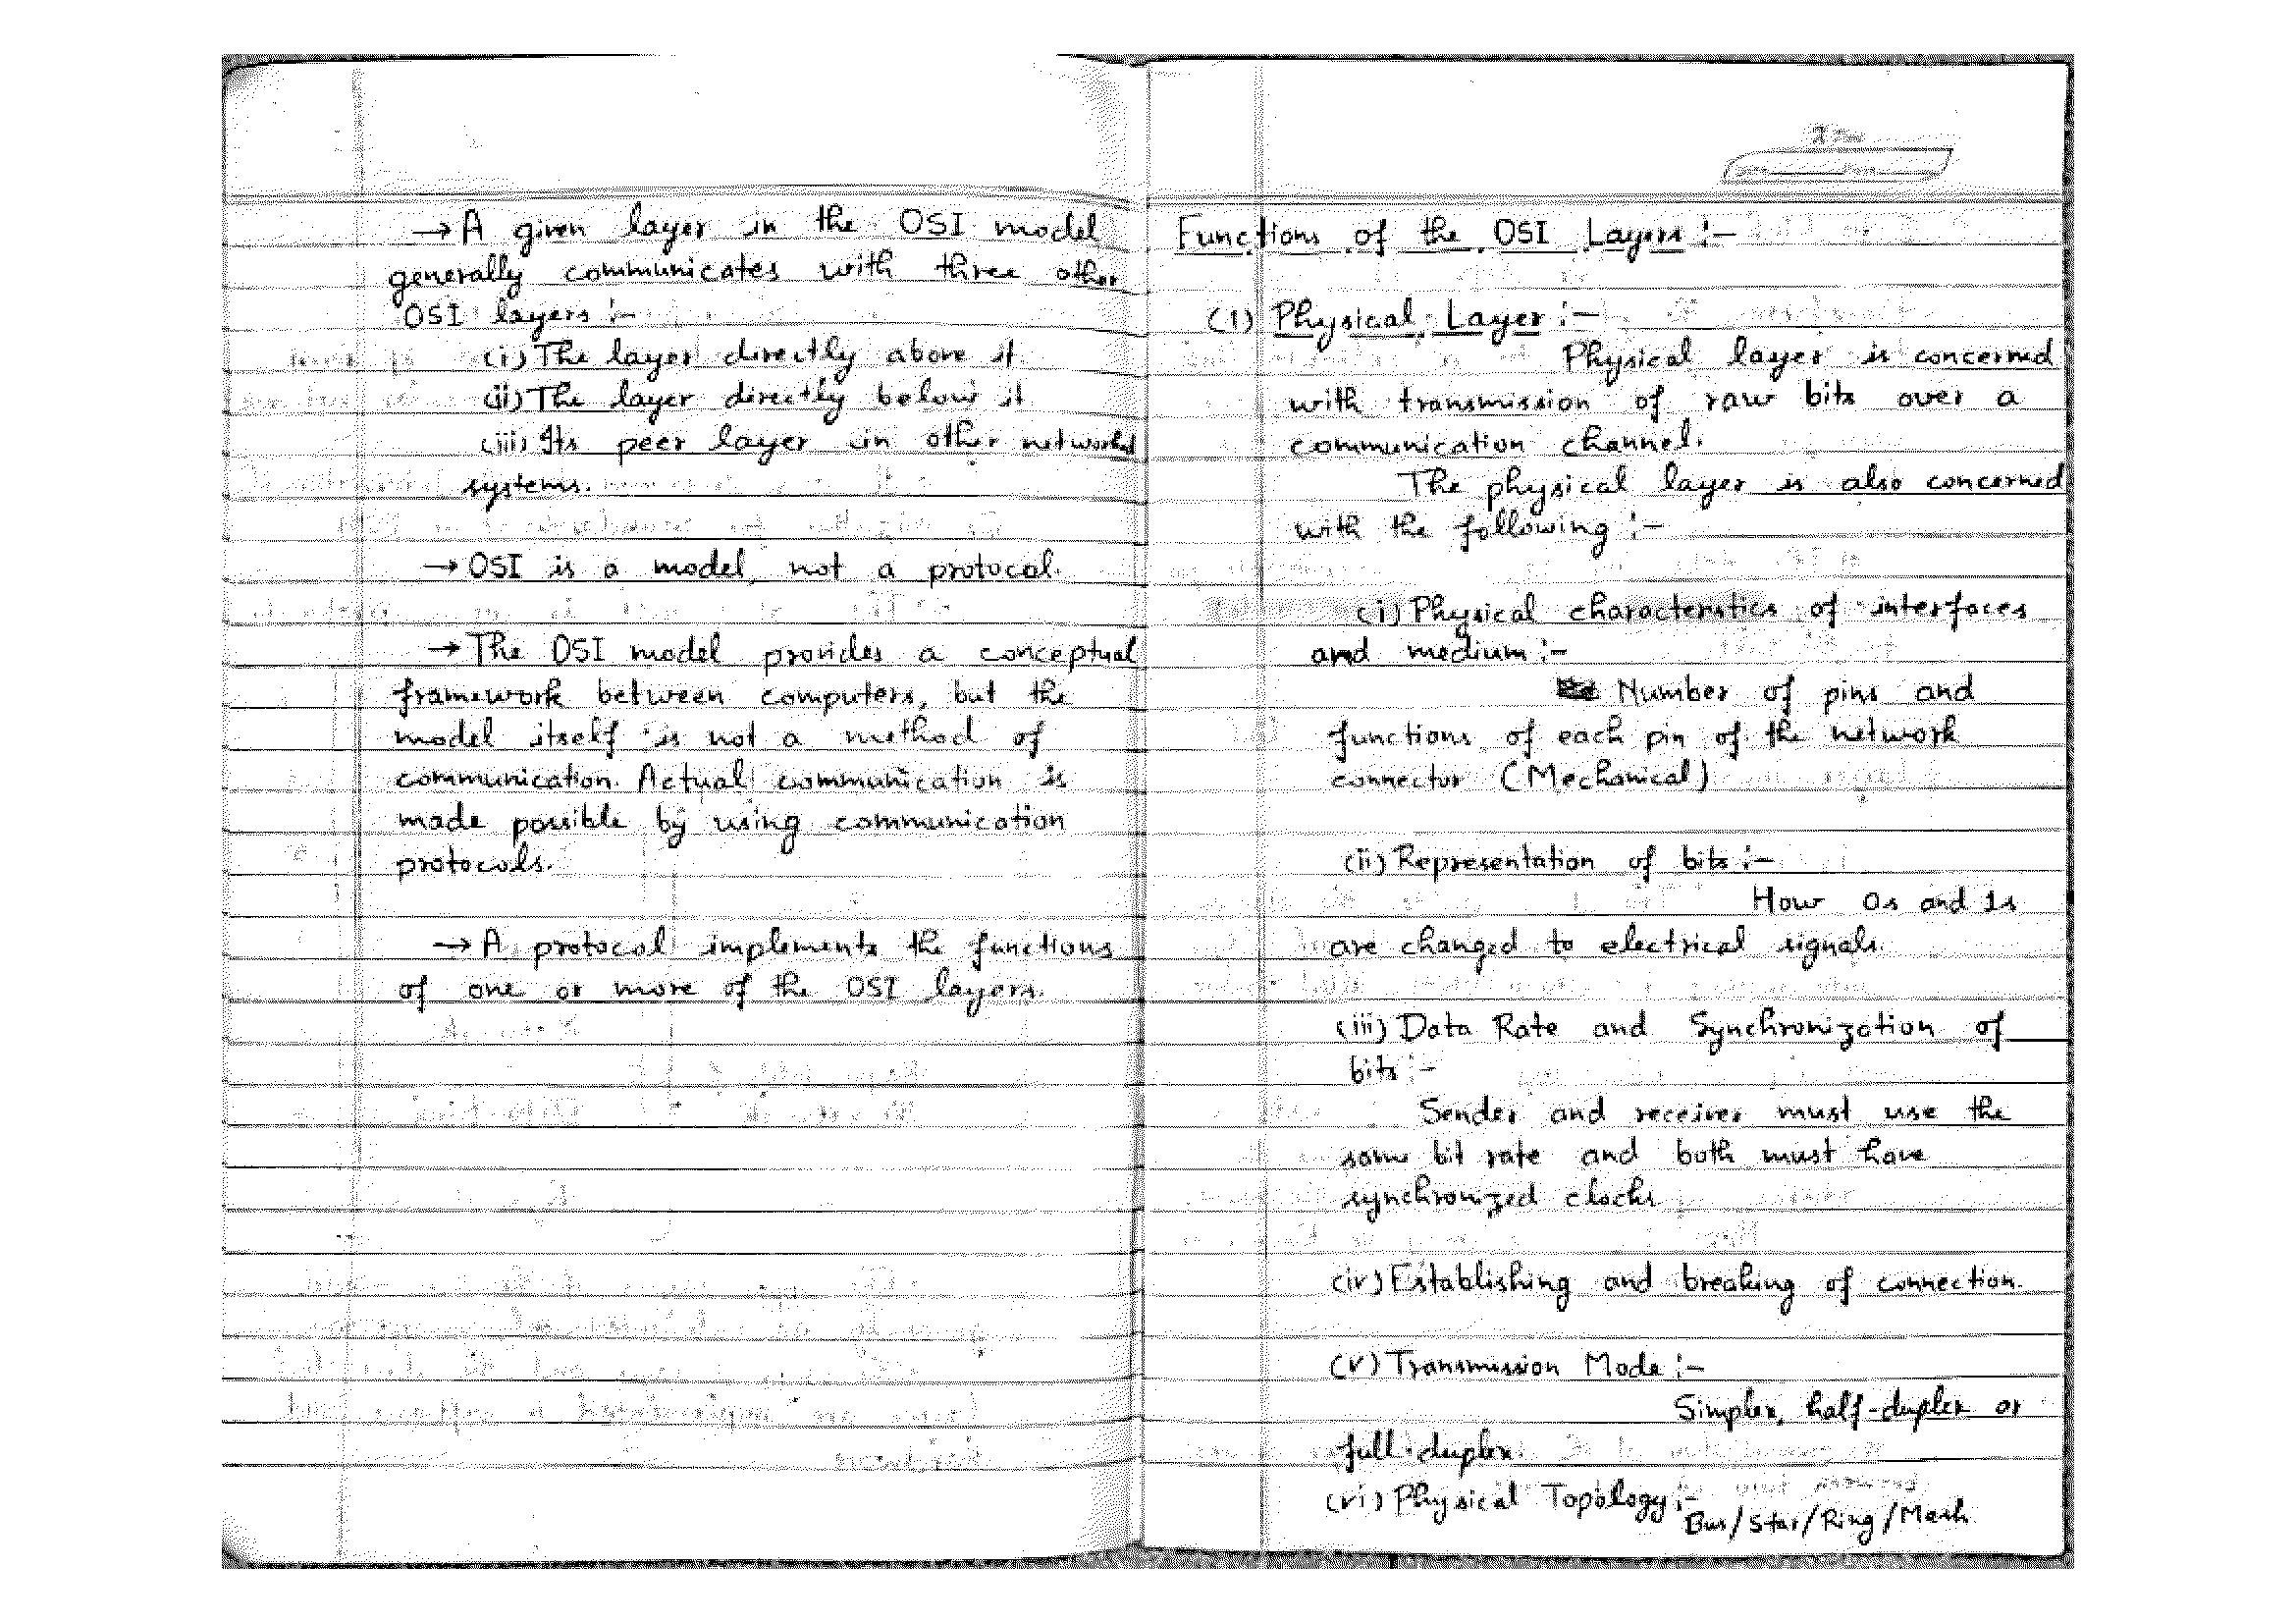 → A given layer in the OSI model
generally communicates with three other
OSI layers :-
(i) The layer directly above it
(ii) The layer directly below it
(iii) Its peer layer in other networked
systems.
→ OSI is a model, not a protocol.
→ The OSI model provides a conceptual
framework between computers, but the
model itself is not a method of
communication. Actual communication is
made possible by using communication
protocols.
→ A protocol implements the functions
of one or more of the OSI layers.
Functions of the OSI Layers :-
(1) Physical Layer :-
Physical layer is concerned
with transmission of raw bits over a
communication channel.
The physical layer is also concerned
with the following :-
(i) Physical characteristics of interfaces
and medium :-
Number of pins and
functions of each pin of the network
connector (Mechanical)
(ii) Representation of bits :-
How 0s and 1s
are changed to electrical signals.
(iii) Data Rate and Synchronization of
bits :-
Sender and receiver must use the
same bit rate and both must have
synchronized clocks
(iv) Establishing and breaking of connection.
(v) Transmission Mode :-
Simplex, half-duplex or
full-duplex.
(vi) Physical Topology :-
Bus/Star/Ring/Mesh